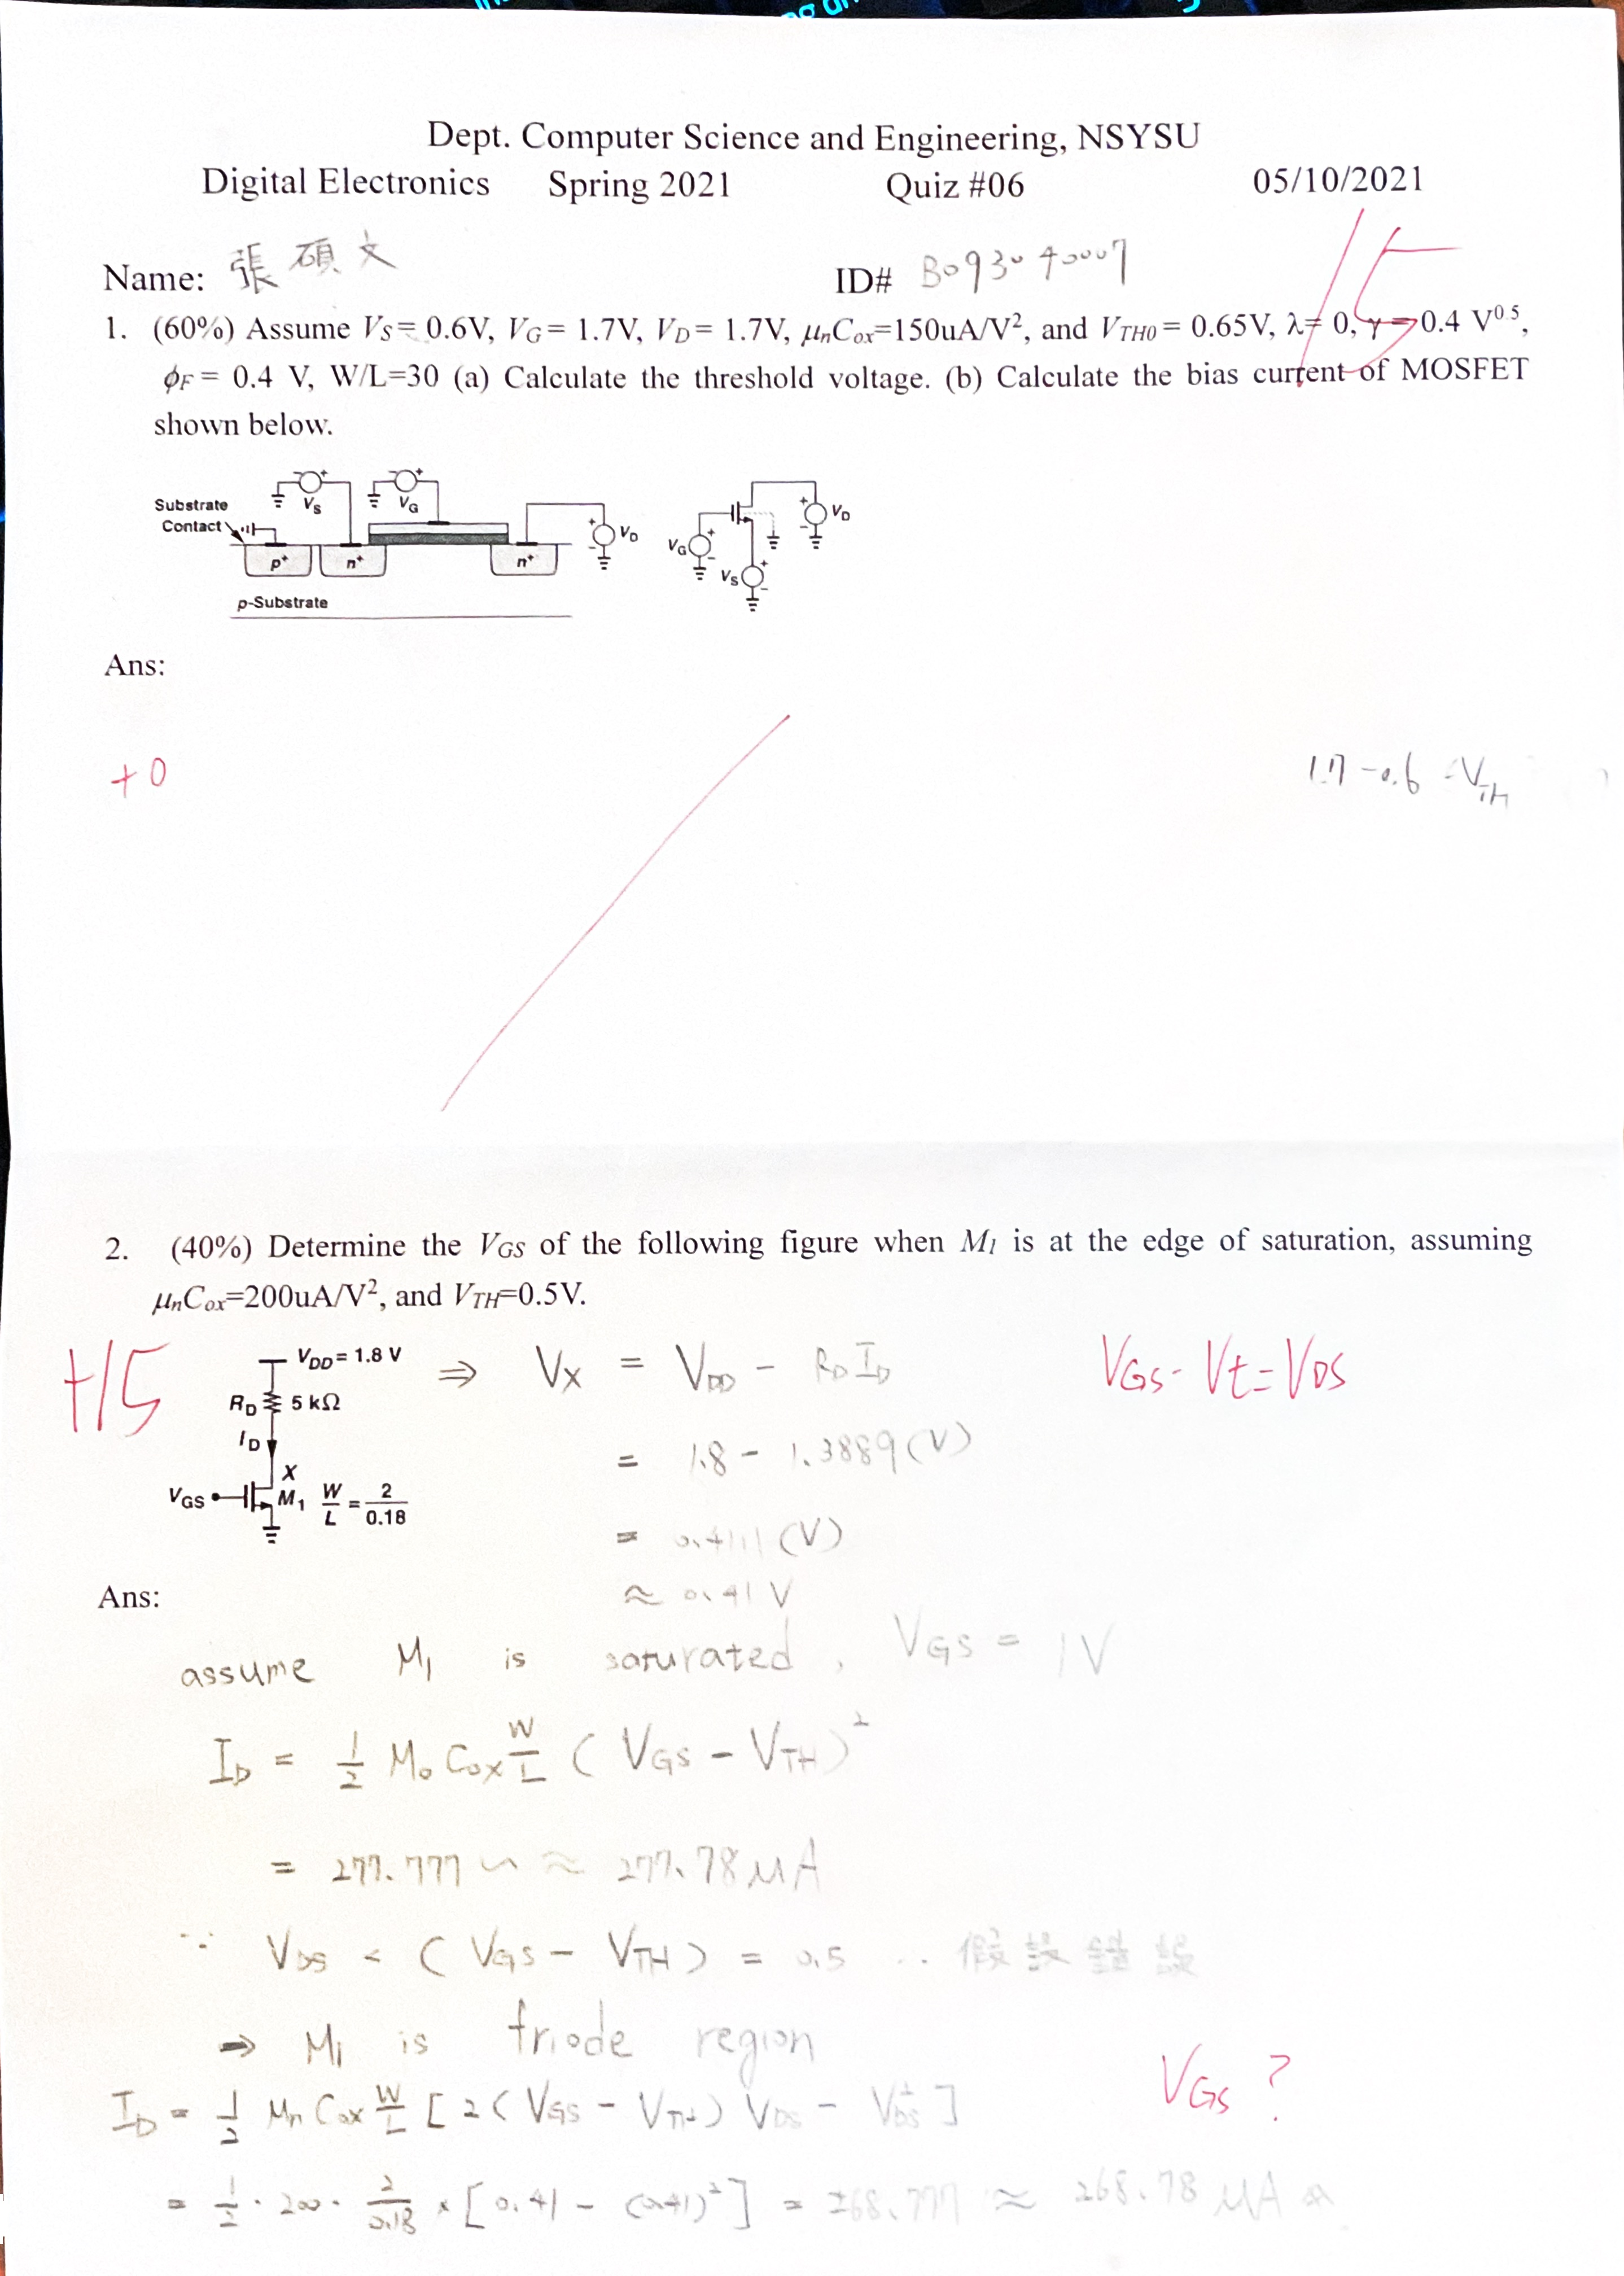 Dept. Computer Science and Engineering, NSYSU
Digital Electronics Spring 2021 Quiz #06 05/10/2021
15
Name: 張碩文 ID# B093040007
1. (60%) Assume VS= 0.6V, VG= 1.7V, VD= 1.7V, μnCox=150uA/V², and VTH0= 0.65V, λ= 0, γ= 0.4 V^0.5,
ϕF= 0.4 V, W/L=30 (a) Calculate the threshold voltage. (b) Calculate the bias current of MOSFET
shown below.
Substrate
Contact
VS
VG
VD
p+
n+
n+
p-Substrate
VG
VS
VD
Ans:
+0
1.7 - 0.6 - VTH
2. (40%) Determine the VGS of the following figure when M1 is at the edge of saturation, assuming
μnCox=200uA/V², and VTH=0.5V.
+15
VDD= 1.8 V
RD 5 kΩ
ID
X
VGS M1 W/L = 2/0.18
⇒ VX = VDD - RD ID
= 1.8 - 1.3889 (V)
= 0.4111 (V)
≈ 0.41 V
VGS - Vt = VDS
Ans:
assume M1 is saturated, VGS = 1V
ID = 1/2 M0 Cox W/L (VGS - VTH)²
= 277.777 ~ ≈ 277.78 μA
∵ VDS < (VGS - VTH) = 0.5 ∴ 假設錯誤
⇒ M1 is triode region
VGS ?
ID = 1/2 Mn Cox W/L [2(VGS - VTH) VDS - VDS²]
= 1/2 · 200 · 2/0.18 × [0.41 - (0.41)²] = 268.777 ≈ 268.78 μA